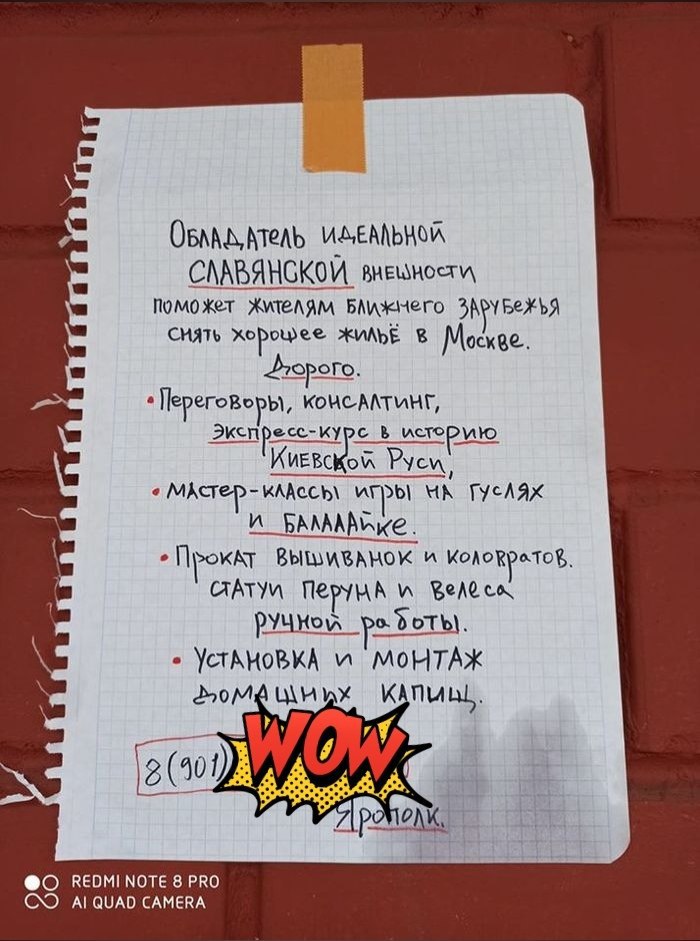 Обладатель идеальной
славянской внешности
поможет жителям ближнего зарубежья
снять хорошее жильё в Москве.
Дорого.
• Переговоры, консалтинг,
экспресс-курс в историю
Киевской Руси,
• мастер-классы игры на гуслях
и балалайке.
• Прокат вышиванок и коловратов.
статуи Перуна и Велеса
ручной работы.
• Установка и монтаж
домашных капищ.
8(901)
WOW
Ярополк.
REDMI NOTE 8 PRO
AI QUAD CAMERA